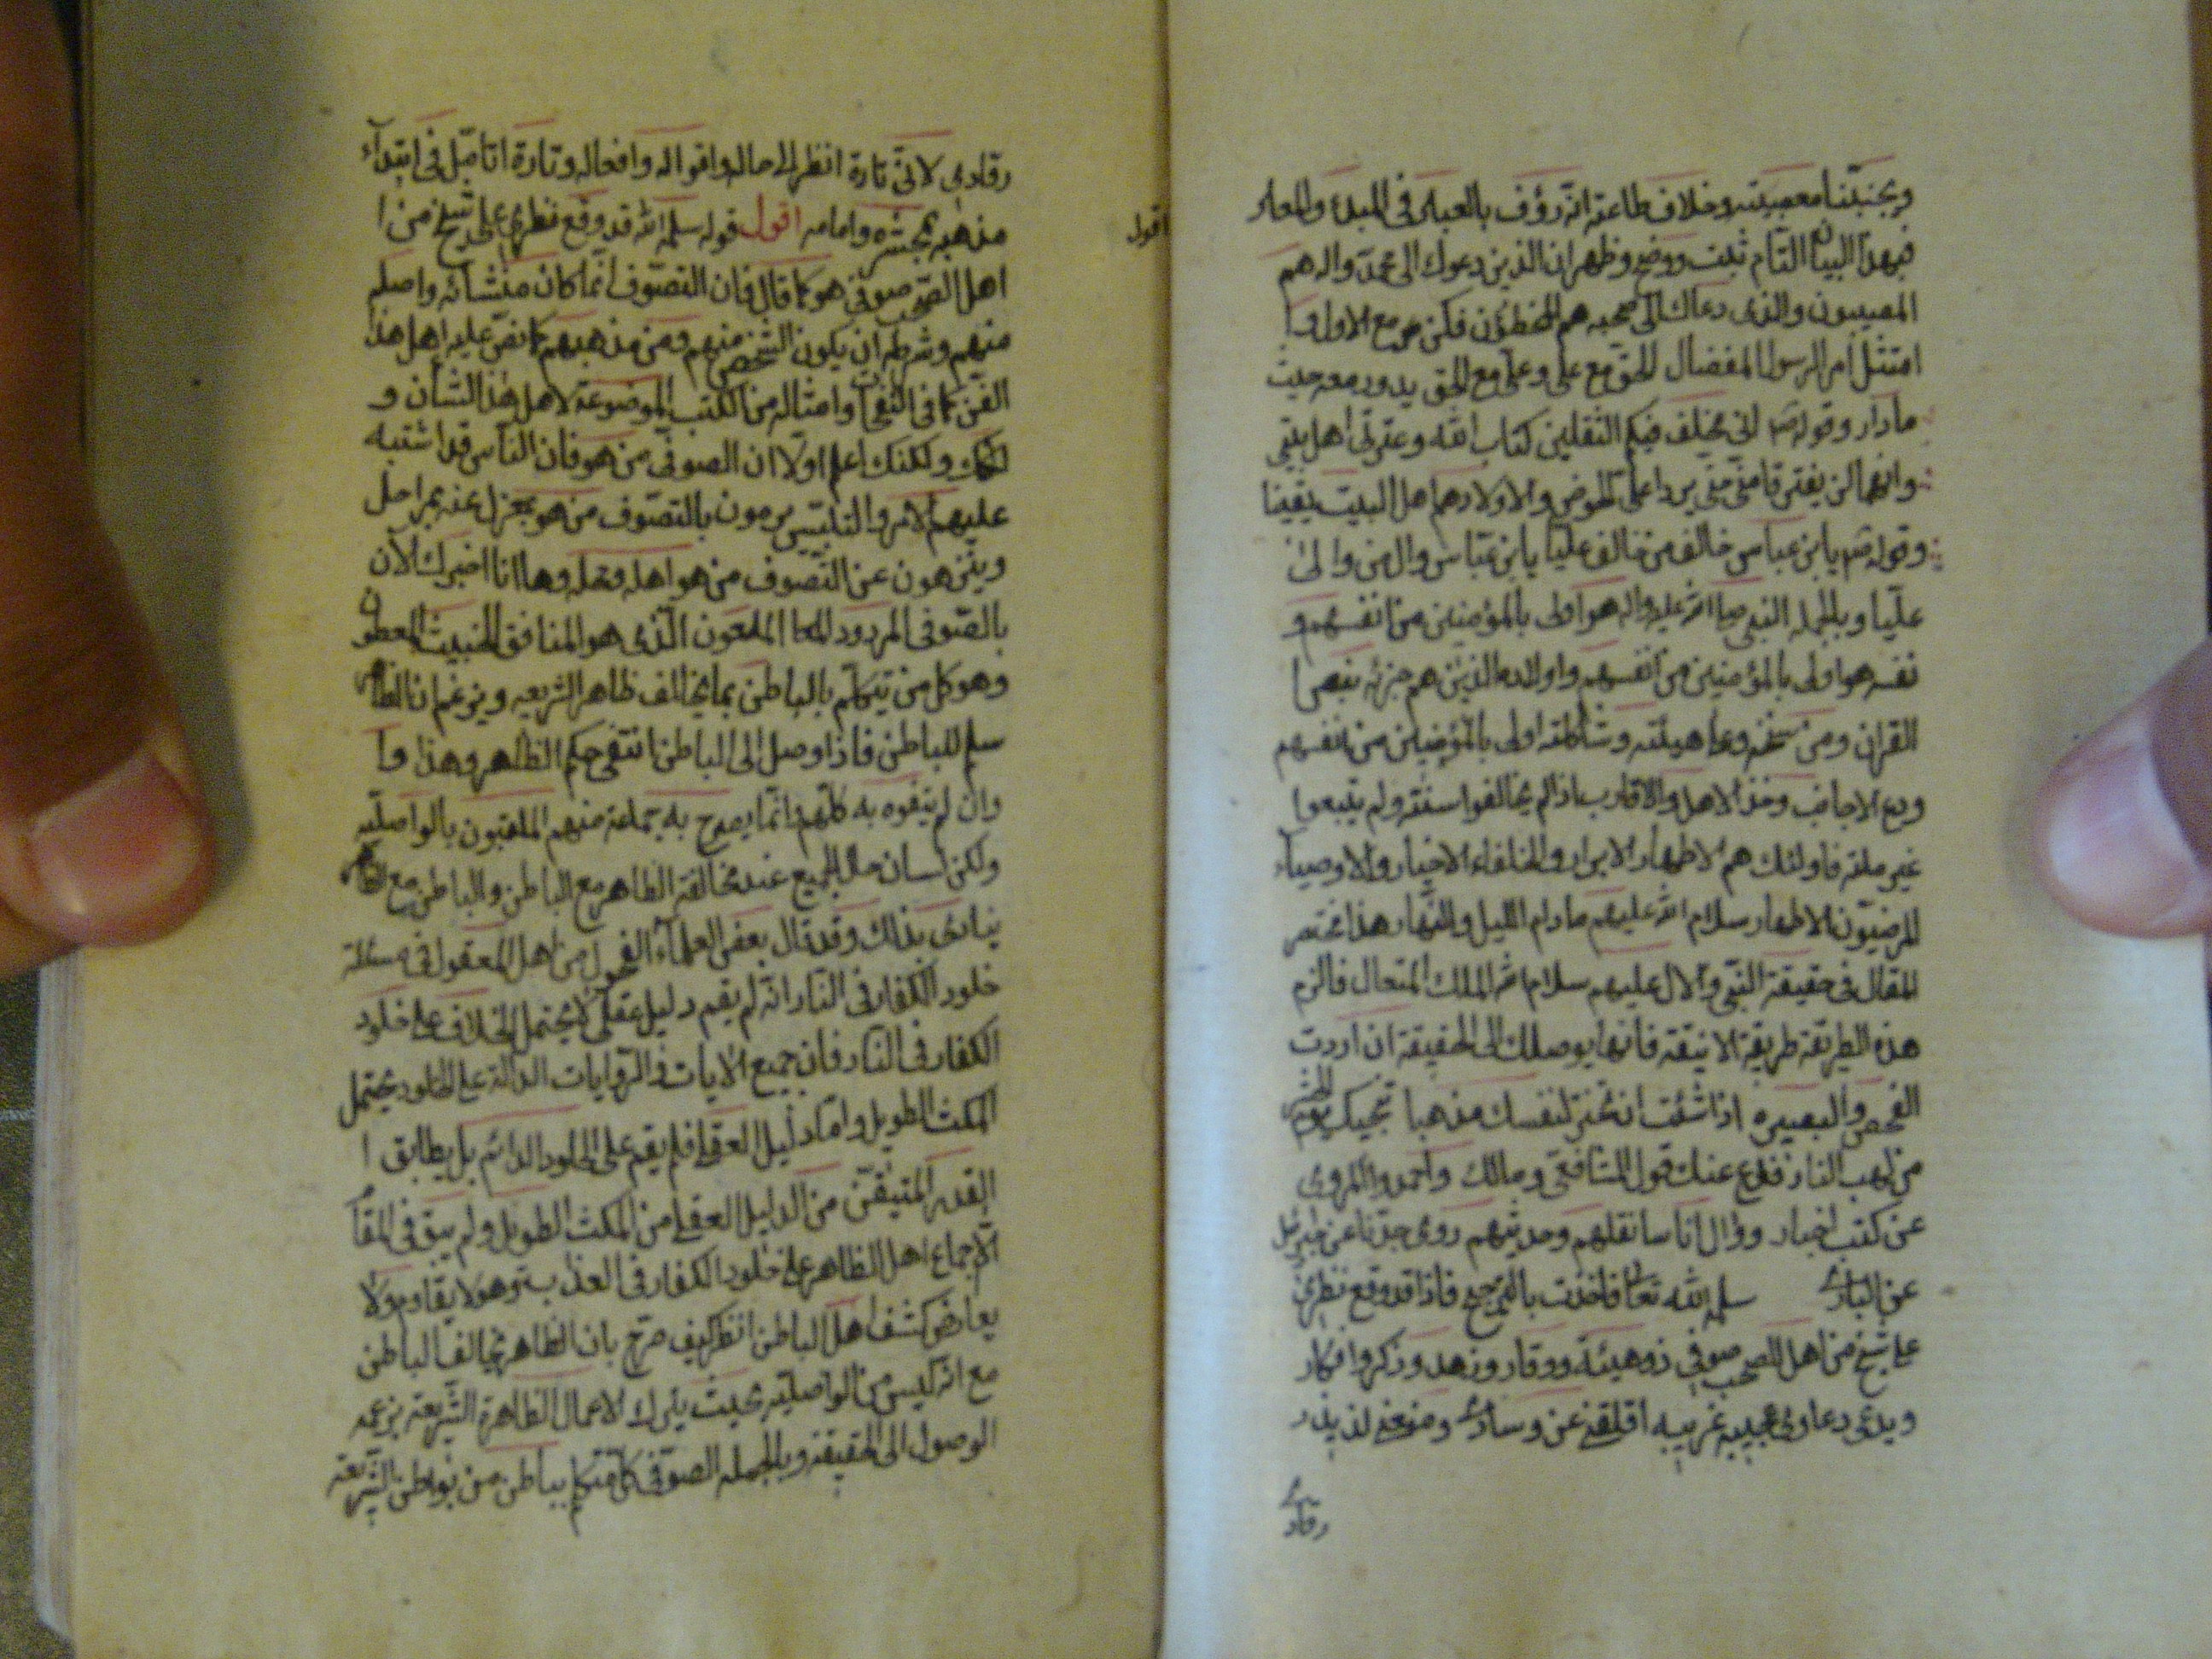 ويجنبنا معصيته وخلاف طاعته انه رؤف بالعباد في المبدء والمعاد
فبهذا البيان التام ثبت ووضح وظهر ان الذين دعوك الى محمد واله هم
المصيبون والذى دعاك الى صحبه هم المخطؤن فكن مع الاول و
امتثل امر الرسول المفضال الحق مع على وعلى مع الحق يدور معه حيث
ما دار وقوله ص انى مخلف فيكم الثقلين كتاب الله وعترتى اهل بيتى
وانهما لن يفترقا حتى يردا على الحوض والاولاد هم اهل البيت يقينا
وقوله ص يا بن عباس خالف من خالف عليا يا بن عباس وال من والى
عليا وبالجمله النبى صلى الله عليه واله هو اولى بالمؤمنين من انفسهم و
نفسه هو اولى بالمؤمنين من انفسهم واولاده الذين هم جزئه بنص ا
القران ومن سنخه وعلى هيئته وشاكلته اولى بالمؤمنين من انفسهم
ودع الاجانب وخذ الاهل والاقارب اذا لم يخالفوا سنته ولم يتبعوا
غير ملته فاولئك هم الاطهار الابرار والخلفاء الاخيار والاوصياء
المرضيون الاطهار سلام الله عليهم ما دام الليل والنهار هذا مختصر
المقال في حقيقة النبى والال عليهم سلام الله الملك المتعال فالزم
هذه الطريقة طريقة الانيقة فانها يوصلك الى الحقيقة ان اردت
الفحص والبصيره اذا شئت ان تختر لنفسك مذهبا تنجيك يوم الحشر
من لهب النار فدع عنك قول الشافعى ومالك واحمد والمروى
عن كعب اخبار ووال اناسا نقلهم وحديثهم روى جدنا عن جبرئيل
عن البارى سلمه الله تعالى فاخذت بالترجيح فاذا قد وقع نظرى
على شيخ من اهل الصحب صوفى ذو هيئة ووقار وزهد وذكر وافكار
ويدعى دعاوى عجيبه غريبه اقلقنى عن وسادى ومنعنى لذيذ
رقادى
اقول
رقادى لانى تارة انظر الى حاله واقواله وافعاله وتارة اتامل فى ابتداء
مذهبه وامامه اقول قوله سلمه الله قد وقع نظرى على شيخ من ا
اهل الصحب صوفى هو كما قال فان التصوف انما كان منشائه واصله
منهم وشرطه ان يكون الشخص منهم ومن مذهبهم كما نص عليه اهل هذا
الفن كما فى النفحات وامثاله من الكتب الموضوعة لاهل هذا الشان و
لكنك اعلم اولا ان الصوفى من هو فان الناس قد اشتبه
عليهم الامر والتلبيس يرمون بالتصوف من هو بمعزل عنه بمراحل
وينزهون عن التصوف من هو اهله ومحله وها انا اخبرك الان
بالصوفى المردود الملعون الذى هو المنافق الخبيث المعطون
وهو كل من يتكلم بالباطن بما يخالف ظاهر الشريعه ويزعم ان الظاهر
سلم للباطن فاذا وصل الى الباطن انتفى حكم الظاهر وهذا وا
وان لم يتفوه به كلهم وانما يصرح به جماعة منهم الملقبون بالواصليه
ولكن لسان حال الجميع عند مخالفة الظاهر مع الباطن والباطن مع الظاهر
ينادى بذلك وقد قال بعض العلماء الفحول من اهل المعقول فى مسئلة
خلود الكفار فى النار انه لم يقم دليل عقلى لا يحتمل الخلاف على خلود
الكفار فى النار فان جميع الايات والروايات الدالة على الخلود يحتمل
المكث الطويل واما دليل العقل فلم يقم على الخلود الدائم بل يطابق ا
القدر المتيقن من الدليل العقلى من المكث الطويل ولم يبق فى المقام
الا اجماع اهل الظاهر على خلود الكفار فى العذاب وهو لا يقاوم ولا
يعارض كشف اهل الباطن انظر كيف صرح بان الظاهر يخالف الباطن
مع انه ليس من الواصليه بحيث يترك الاعمال الظاهرة الشريعة بزعمه
الوصول الى الحقيقة وبالجمله الصوفى كل متكلم بباطن من بواطن الشريعة